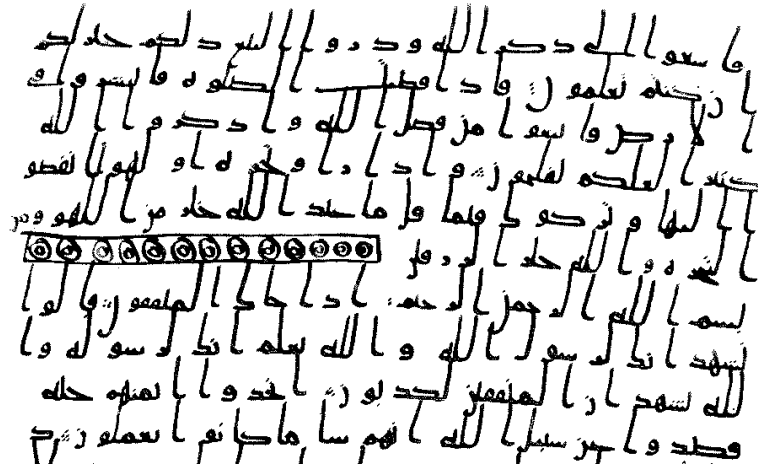 فاسعوا الى ذكر الله وذروا البيع ذلكم خير لكم
ان كنتم تعلمون فاذا قضيت الصلوه فانتشروا في
الارض وابتغوا من فضل الله واذكروا الله
كثيرا لعلكم تفلحون واذا راوا تجره او لهوا انفضوا
اليها وتركوك قما قل ما عند الله خير من اللهو ومن
التجره والله خير الرزقين
بسم الله الرحمن الرحيم اذا جاك المنفقون قالوا
نشهد انك لرسول الله والله يعلم انك لرسوله وا
لله يشهد ان المنفقين لكذبون اتخذوا ايمنهم جنه
فصدوا عن سبيل الله انهم سا ما كانوا يعملون ذ